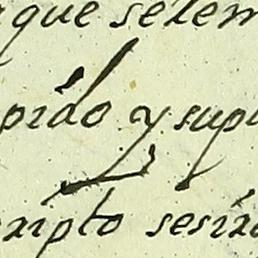 que se tem
pido y sup
xipto sesira